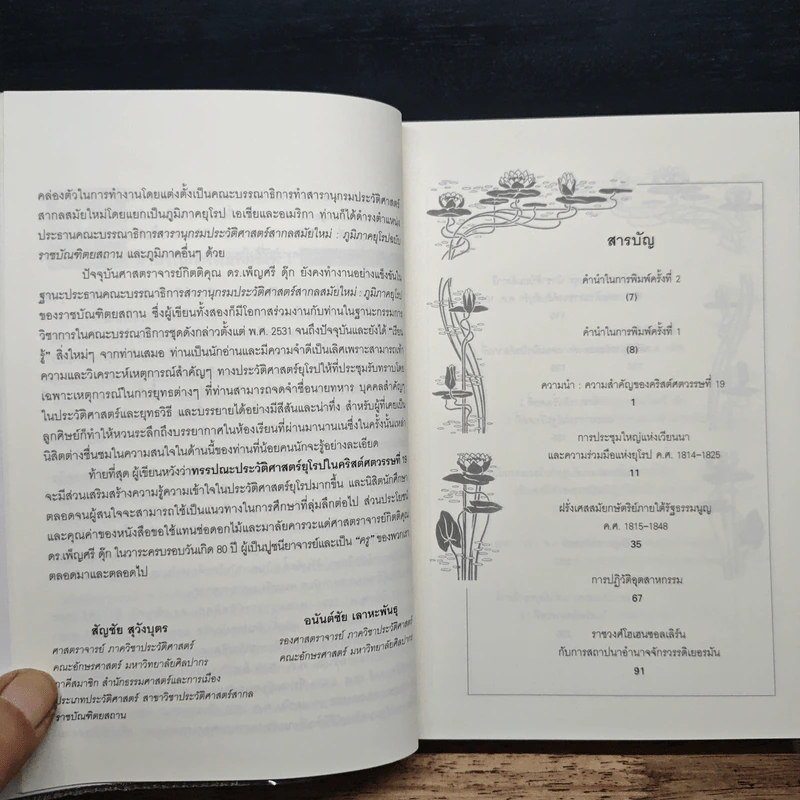 คล่องตัวในการทำงานโดยแต่งตั้งเป็นคณะบรรณาธิการทำสารานุกรมประวัติศาสตร์
สากลสมัยใหม่โดยแยกเป็นภูมิภาคยุโรป เอเชียและอเมริกา ท่านก็ได้ดำรงตำแหน่ง
ประธานคณะบรรณาธิการสารานุกรมประวัติศาสตร์สากลสมัยใหม่ : ภูมิภาคยุโรปฉบับ
ราชบัณฑิตยสถาน และภูมิภาคอื่นๆ ด้วย
ปัจจุบันศาสตราจารย์กิตติคุณ ดร.เพ็ญศรี ดุ๊ก ยังคงทำงานอย่างแข็งขันใน
ฐานะประธานคณะบรรณาธิการสารานุกรมประวัติศาสตร์สากลสมัยใหม่ : ภูมิภาคยุโรป
ของราชบัณฑิตยสถาน ซึ่งผู้เขียนทั้งสองก็มีโอกาสร่วมงานกับท่านในฐานะกรรมการ
วิชาการในคณะบรรณาธิการชุดดังกล่าวตั้งแต่ พ.ศ. 2531 จนถึงปัจจุบันและยังได้ "เรียน
รู้" สิ่งใหม่ๆ จากท่านเสมอ ท่านเป็นนักอ่านและมีความจำดีเป็นเลิศเพราะสามารถเท้า
ความและวิเคราะห์เหตุการณ์สำคัญๆ ทางประวัติศาสตร์ยุโรปให้ที่ประชุมรับทราบโดย
เฉพาะเหตุการณ์ในการยุทธต่างๆ ที่ท่านสามารถจดจำชื่อนายทหาร บุคคลสำคัญๆ
ในประวัติศาสตร์และยุทธวิธี และบรรยายได้อย่างมีสีสันและน่าทึ่ง สำหรับผู้ที่เคยเป็น
ลูกศิษย์ก็ทำให้หวนระลึกถึงบรรยากาศในห้องเรียนที่ผ่านมานานเนซึ่งในครั้งนั้นเหล่า
นิสิตต่างชื่นชมในความสนใจในด้านนี้ของท่านที่น้อยคนนักจะรู้อย่างละเอียด
ท้ายที่สุด ผู้เขียนหวังว่าทรรปณะประวัติศาสตร์ยุโรปในคริสต์ศตวรรษที่ 19
จะมีส่วนเสริมสร้างความรู้ความเข้าใจในประวัติศาสตร์ยุโรปมากขึ้น และนิสิตนักศึกษา
ตลอดจนผู้สนใจจะสามารถใช้เป็นแนวทางในการศึกษาที่ลุ่มลึกต่อไป ส่วนประโยชน์
และคุณค่าของหนังสือขอใช้แทนช่อดอกไม้และมาลัยคารวะแด่ศาสตราจารย์กิตติคุณ
ดร.เพ็ญศรี ดุ๊ก ในวาระครบรอบวันเกิด 80 ปี ผู้เป็นปูชนียาจารย์และเป็น "ครู" ของพวกเรา
ตลอดมาและตลอดไป
สัญชัย สุวังบุตร
ศาสตราจารย์ ภาควิชาประวัติศาสตร์
คณะอักษรศาสตร์ มหาวิทยาลัยศิลปากร
ภาคีสมาชิก สำนักธรรมศาสตร์และการเมือง
ประเภทประวัติศาสตร์ สาขาวิชาประวัติศาสตร์สากล
ราชบัณฑิตยสถาน
อนันต์ชัย เลาหะพันธุ
รองศาสตราจารย์ ภาควิชาประวัติศาสตร์
คณะอักษรศาสตร์ มหาวิทยาลัยศิลปากร
สารบัญ
คำนำในการพิมพ์ครั้งที่ 2
(7)
คำนำในการพิมพ์ครั้งที่ 1
(8)
ความนำ : ความสำคัญของคริสต์ศตวรรษที่ 19
1
การประชุมใหญ่แห่งเวียนนา
และความร่วมมือแห่งยุโรป ค.ศ. 1814-1825
11
ฝรั่งเศสสมัยกษัตริย์ภายใต้รัฐธรรมนูญ
ค.ศ. 1815-1848
35
การปฏิวัติอุตสาหกรรม
67
ราชวงศ์โฮเฮนซอลเลิร์น
กับการสถาปนาอำนาจจักรวรรดิเยอรมัน
91